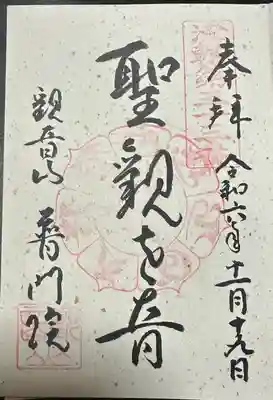 奉拝 令和六年十一月十九日
聖観世音
観音山 普門院